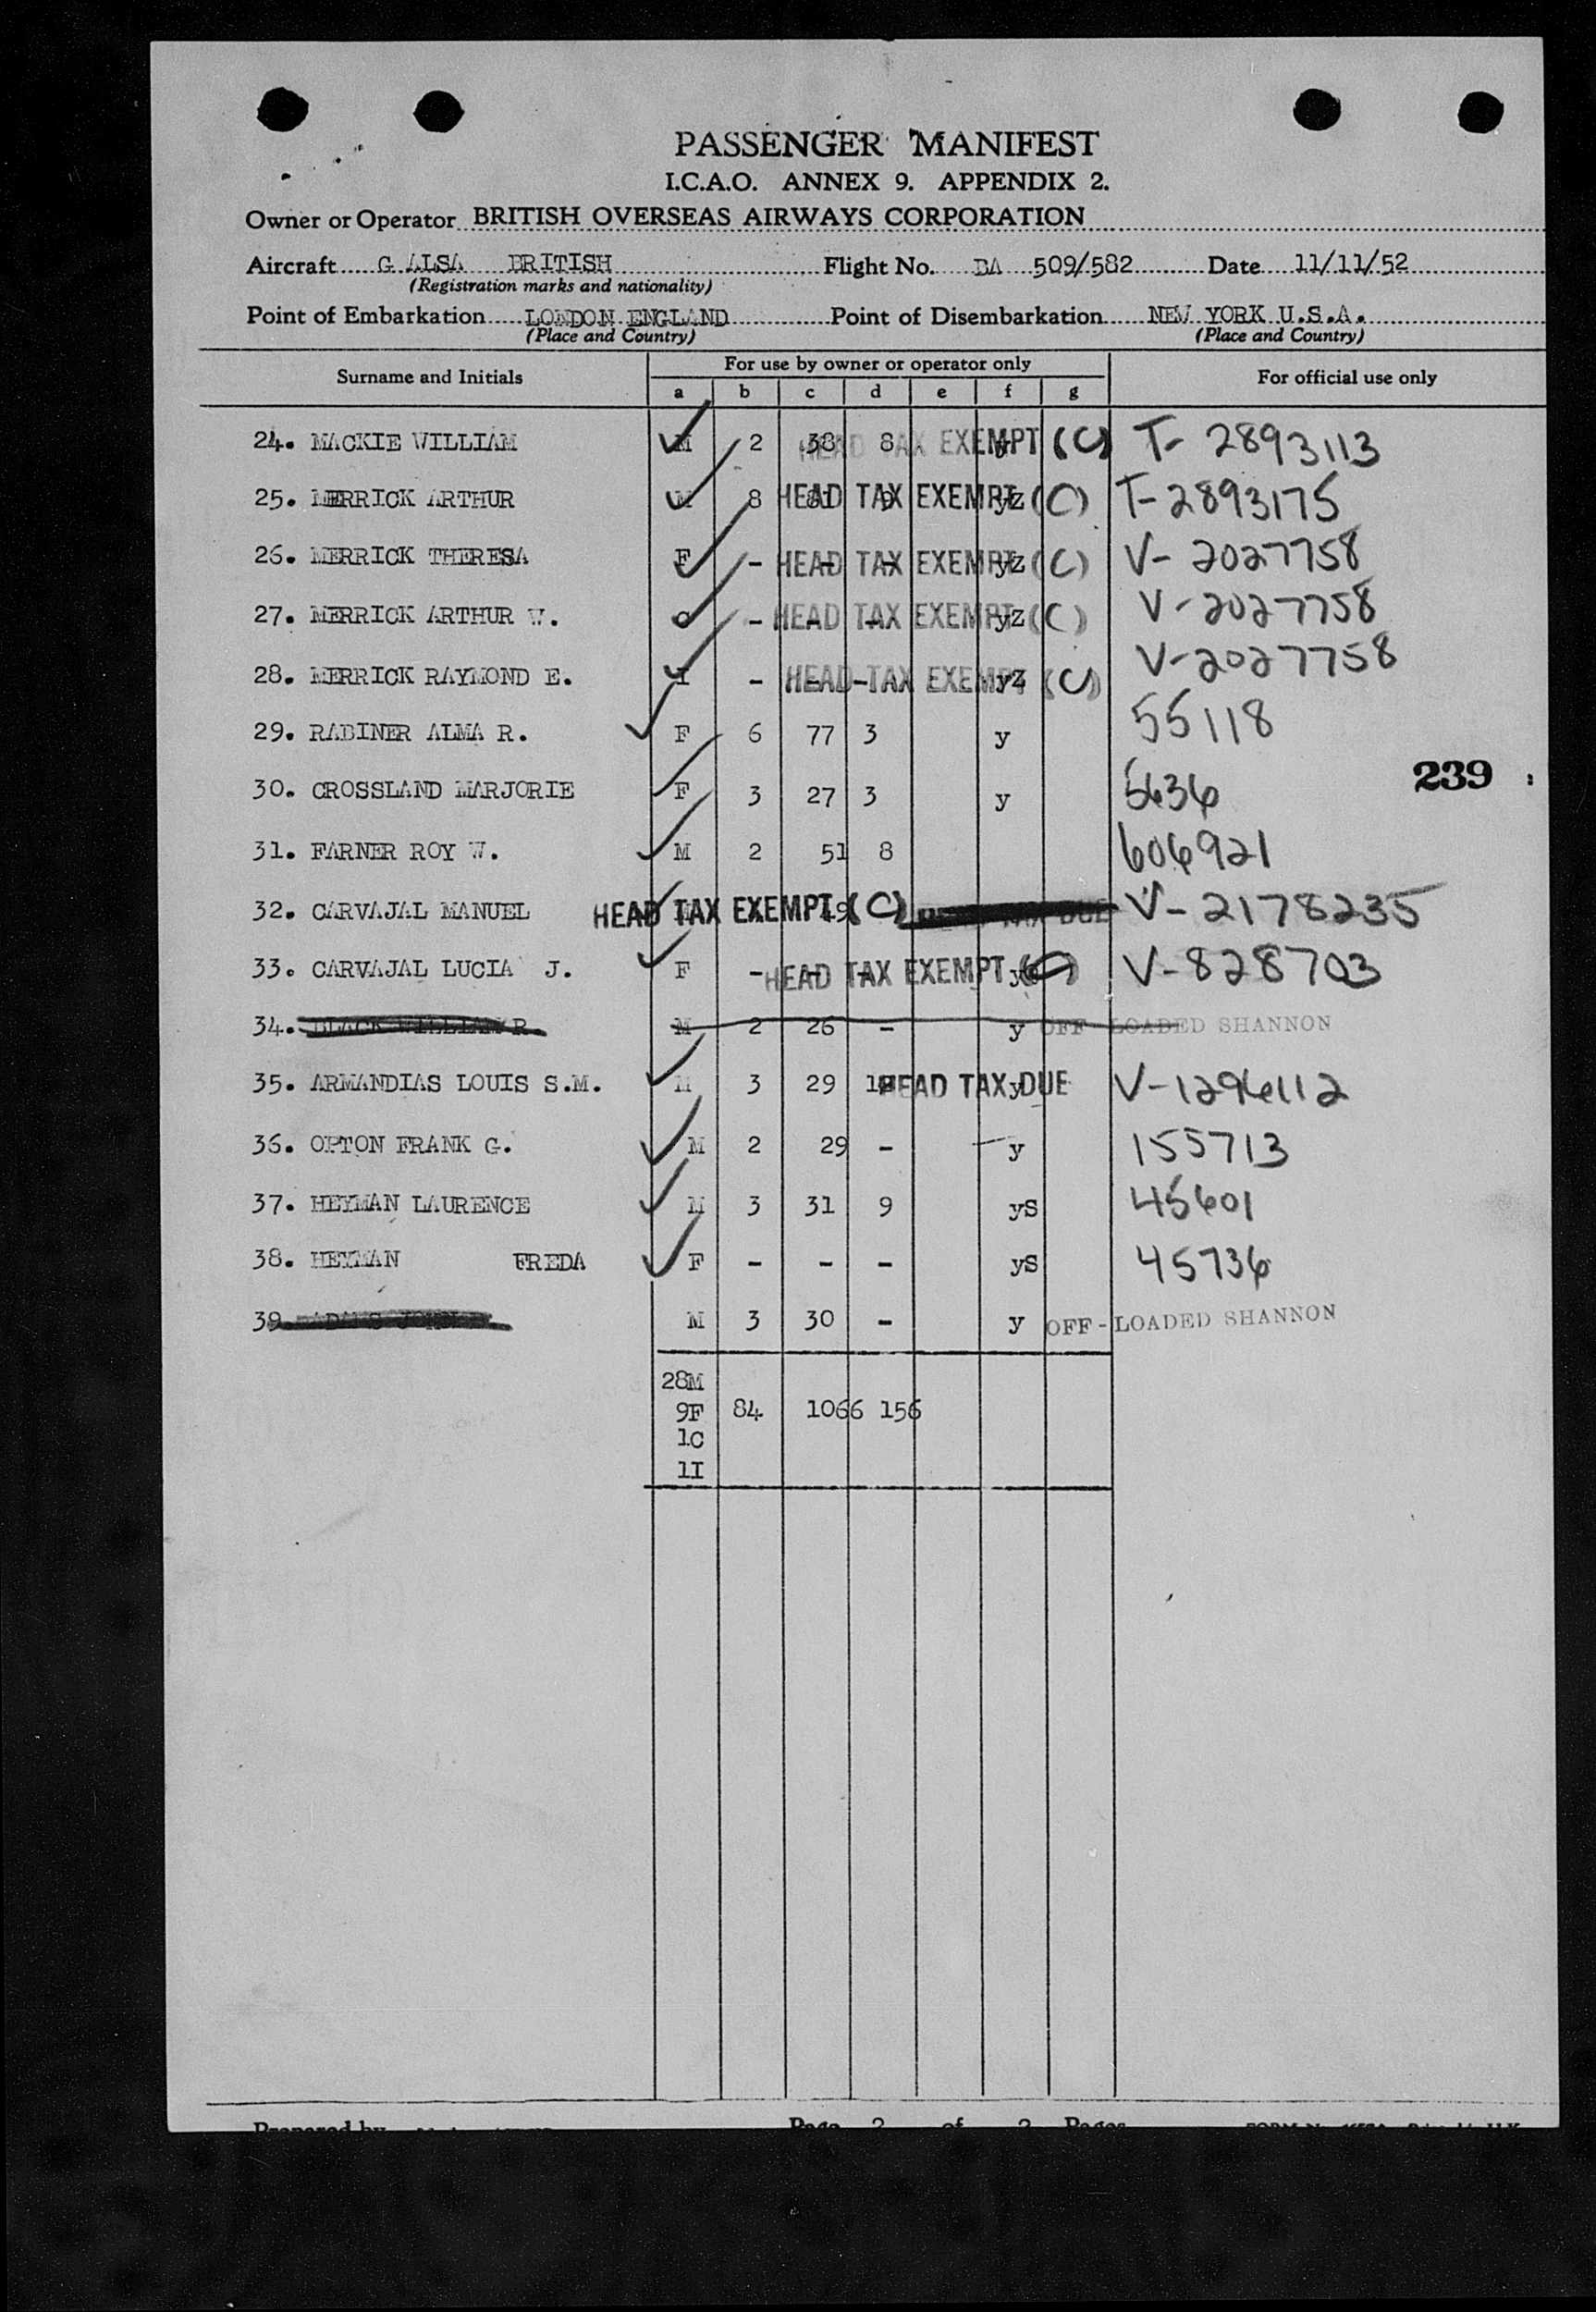 PASSENGER MANIFEST
I.C.A.O. ANNEX 9. APPENDIX 2.
Owner or Operator BRITISH OVERSEAS AIRWAYS CORPORATION
Aircraft G ALSA BRITISH Flight No. BA 509/582 Date 11/11/52
(Registration marks and nationality)
Point of Embarkation LONDON ENGLAND Point of Disembarkation NEW YORK U.S.A.
(Place and Country) (Place and Country)
Surname and Initials For use by owner or operator only For official use only
a b c d e f g
24. MACKIE WILLIAM M 2 38 8 HEAD TAX EXEMPT (C) T- 2893113
25. MERRICK ARTHUR M 8 HEAD TAX EXEMPT yz (C) T-2893175
26. MERRICK THERESA F - - - HEAD TAX EXEMPT yz (C) V- 2027758
27. MERRICK ARTHUR W. C - - - HEAD TAX EXEMPT yz (C) V-2027758
28. MERRICK RAYMOND E. I - - - HEAD TAX EXEMPT yz (C) V-2027758
29. RABINER ALMA R. F 6 77 3 y 55118
30. CROSSLAND MARJORIE F 3 27 3 y 5636
239
31. FARNER ROY W. M 2 51 8 606921
32. CARVAJAL MANUEL M 49 HEAD TAX EXEMPT (C) TAX DUE V- 2178235
33. CARVAJAL LUCIA J. F - - - HEAD TAX EXEMPT y (C) V-828703
34. BLACK WILLIAM R. M 2 26 - y OFF-LOADED SHANNON
35. ARMANDIAS LOUIS S.M. M 3 29 HEAD TAX DUE y V-1296112
36. OPTON FRANK G. M 2 29 - y 155713
37. HEYMAN LAURENCE M 3 31 9 ys 45601
38. HEYMAN FREDA F - - - ys 45736
39. M 3 30 - y OFF-LOADED SHANNON
28M
9F 84 1066 156
1C
1I
Prepared by Page 2 of 2 Pages